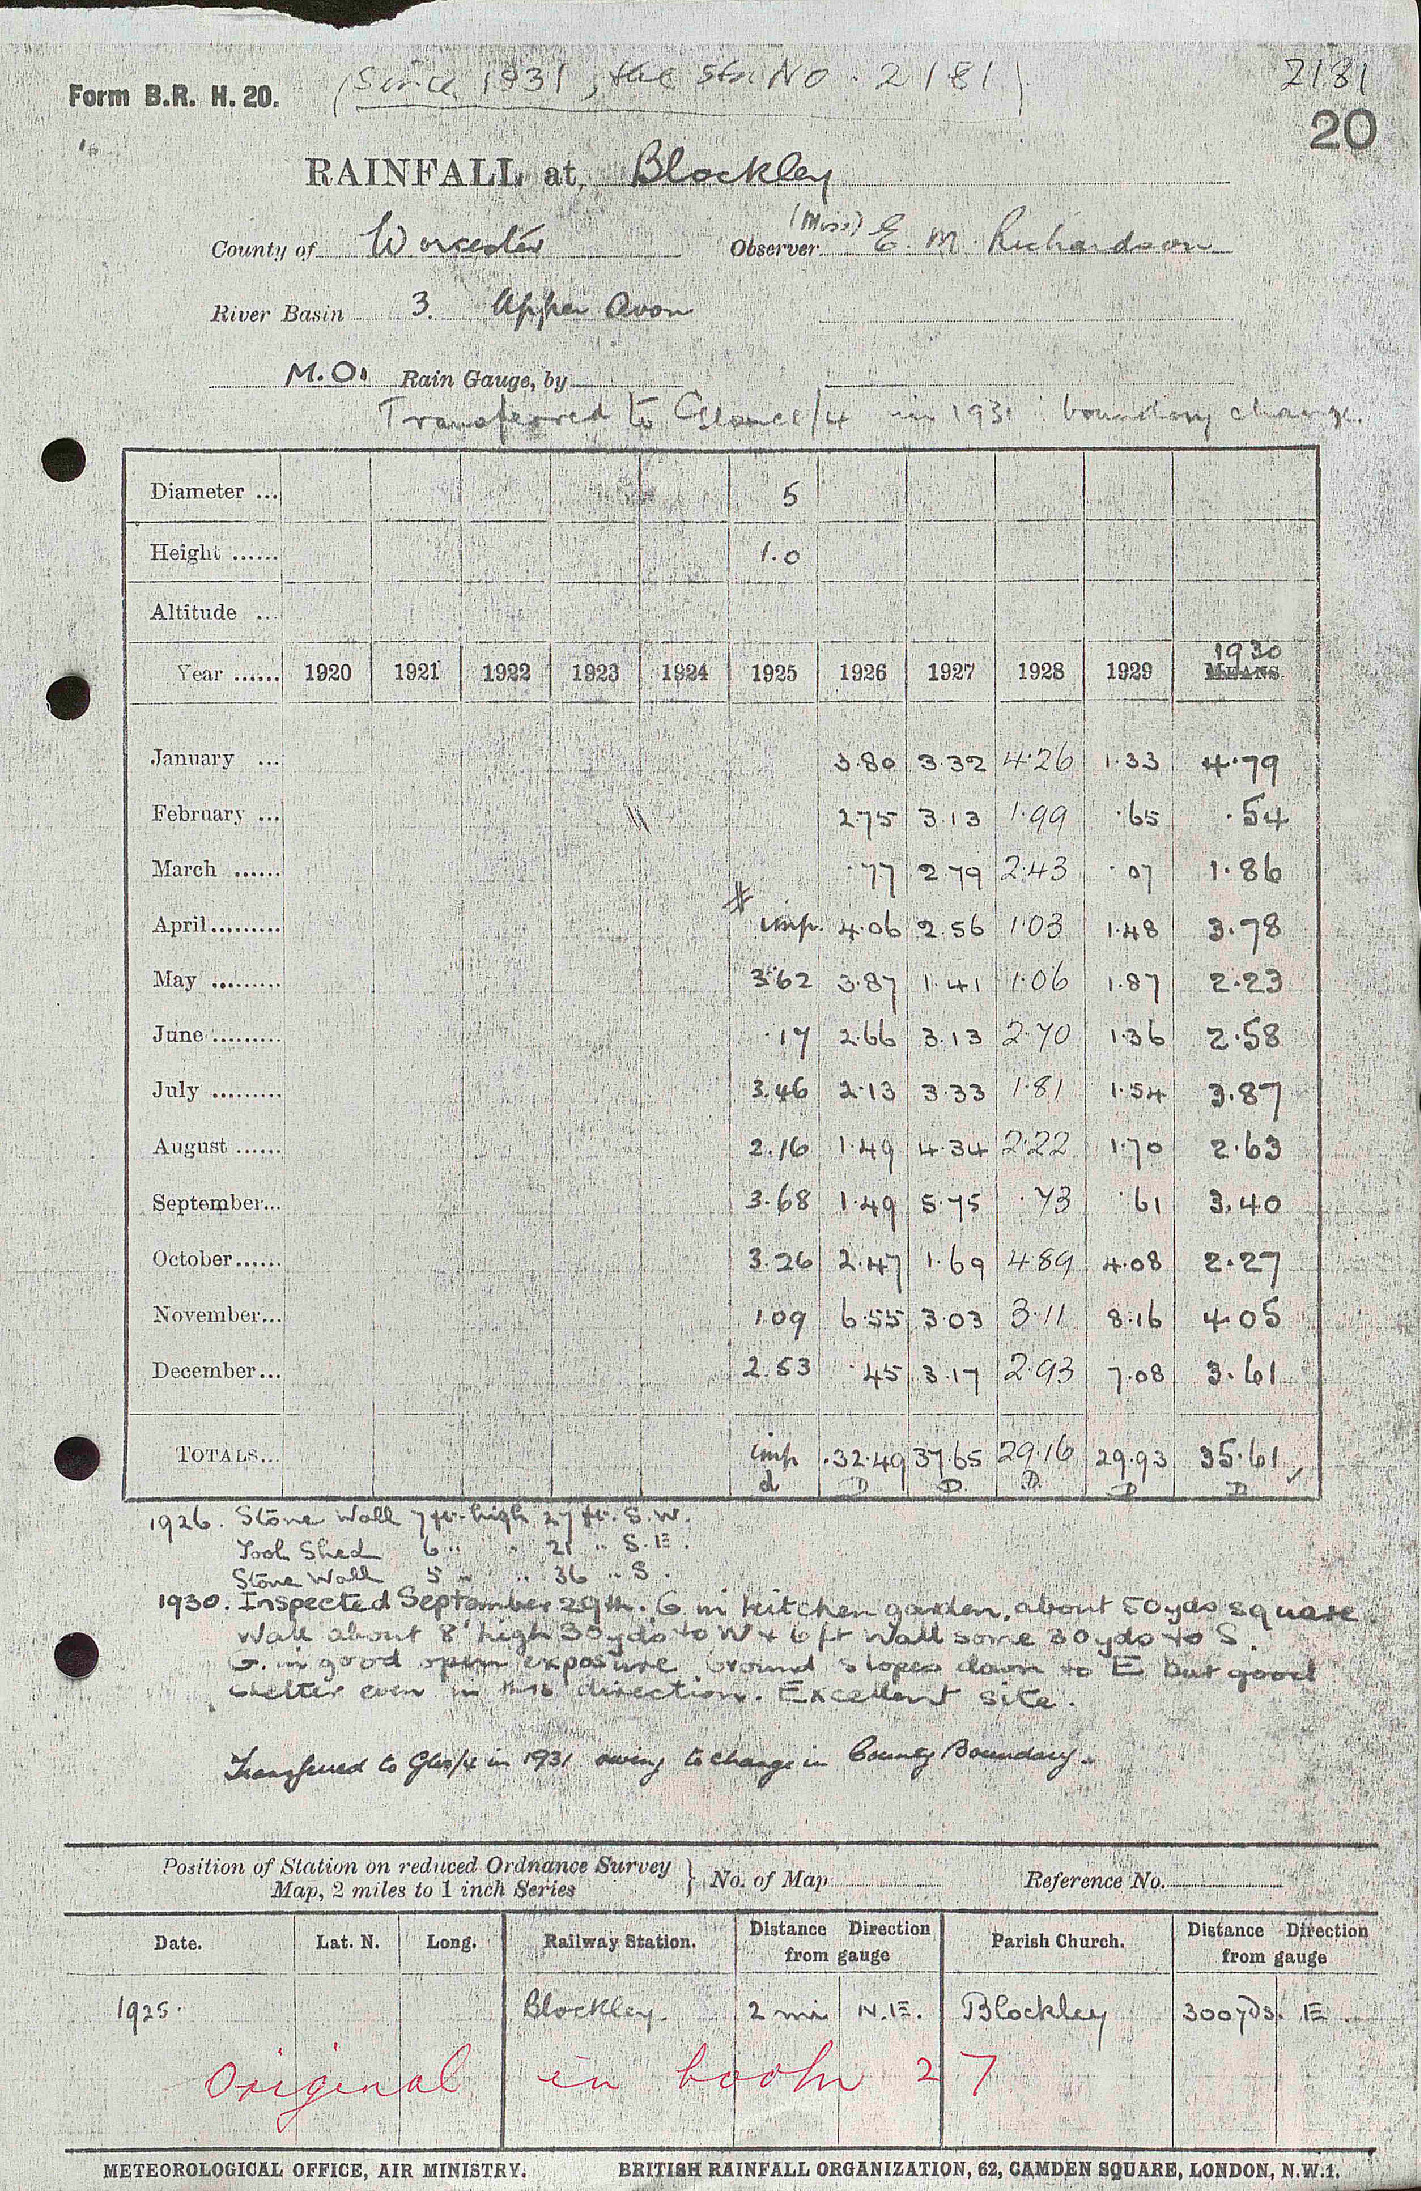 (Since 1931, the stn No. 2181)
2181
Form B.R. H. 20.
20
RAINFALL at Blockley
County of Worcester Observer (Miss) E. M. Richardson
River Basin 3. Upper Avon
M.O. Rain Gauge, by
Transferred to Glouces/4 in 1931 boundary change.
Diameter ... 5
Height ...... 1.0
Altitude ...
Year ...... 1920 1921 1922 1923 1924 1925 1926 1927 1928 1929 1930 MEANS
January ... 3.80 3.32 4.26 1.33 4.79
February ... 2.75 3.13 1.99 .65 .54
March ...... .77 2.79 2.43 .07 1.86
April......... imp. 4.06 2.56 1.03 1.48 3.78
May ......... 3.62 3.87 1.41 1.06 1.87 2.23
June ......... .17 2.66 3.13 2.70 1.36 2.58
July ......... 3.46 2.13 3.33 1.81 1.54 3.87
August ...... 2.16 1.49 4.34 2.22 1.70 2.63
September... 3.68 1.49 5.75 .73 .61 3.40
October...... 3.26 2.47 1.69 4.89 4.08 2.27
November... 1.09 6.55 3.03 3.11 8.16 4.05
December... 2.53 .45 3.17 2.93 7.08 3.61
TOTALS... imp 32.49 37.65 29.16 29.93 35.61
d D D. D. D D
1926. Stone Wall 7 ft. high 27 ft. S.W.
Tool Shed 6 " " 21 " S.E.
Stone Wall 5 " " 36 " S.
1930. Inspected September 29th. G. in kitchen garden, about 50 yds square.
Wall about 8' high 30 yds to W & 6 ft wall some 30 yds to S.
G. in good open exposure, ground slopes down to E but good
shelter even in this direction. Excellent site.
Transferred to Glos/4 in 1931 owing to change in County Boundary.
Position of Station on reduced Ordnance Survey
Map, 2 miles to 1 inch Series } No. of Map Reference No.
Date. Lat. N. Long. Railway Station. Distance Direction from gauge Parish Church. Distance Direction from gauge
1925. Blockley. 2 mi N.E. Blockley 300 yds. E.
Original in book 27
METEOROLOGICAL OFFICE, AIR MINISTRY. BRITISH RAINFALL ORGANIZATION, 62, CAMDEN SQUARE, LONDON, N.W.1.